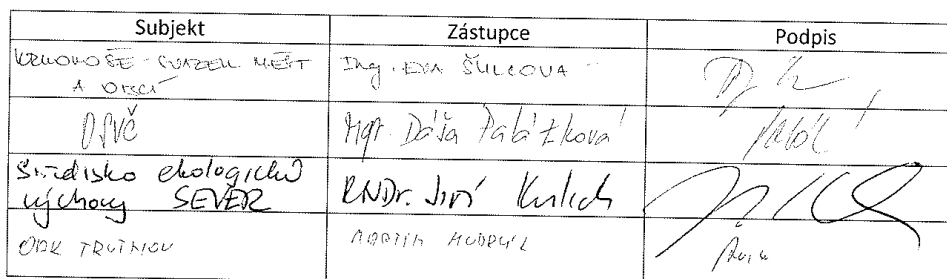 Subjekt Zástupce Podpis
KRKONOŠE - SVAZEK MĚST Ing. EVA ŠULCOVA
A OBCÍ
OSVČ Mgr. Dáša Palátková
Středisko ekologické
výchovy SEVER RNDr. Jiří Kulich
OHK TRUTNOV MARTIN